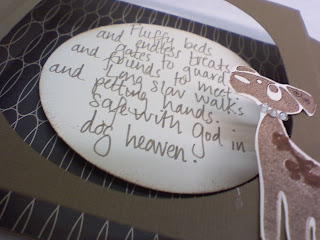 Fluffy beds
and endless treats
and gates to guard
and friends to meet
and long slow walks
petting hands.
Safe with God in
dog heaven!